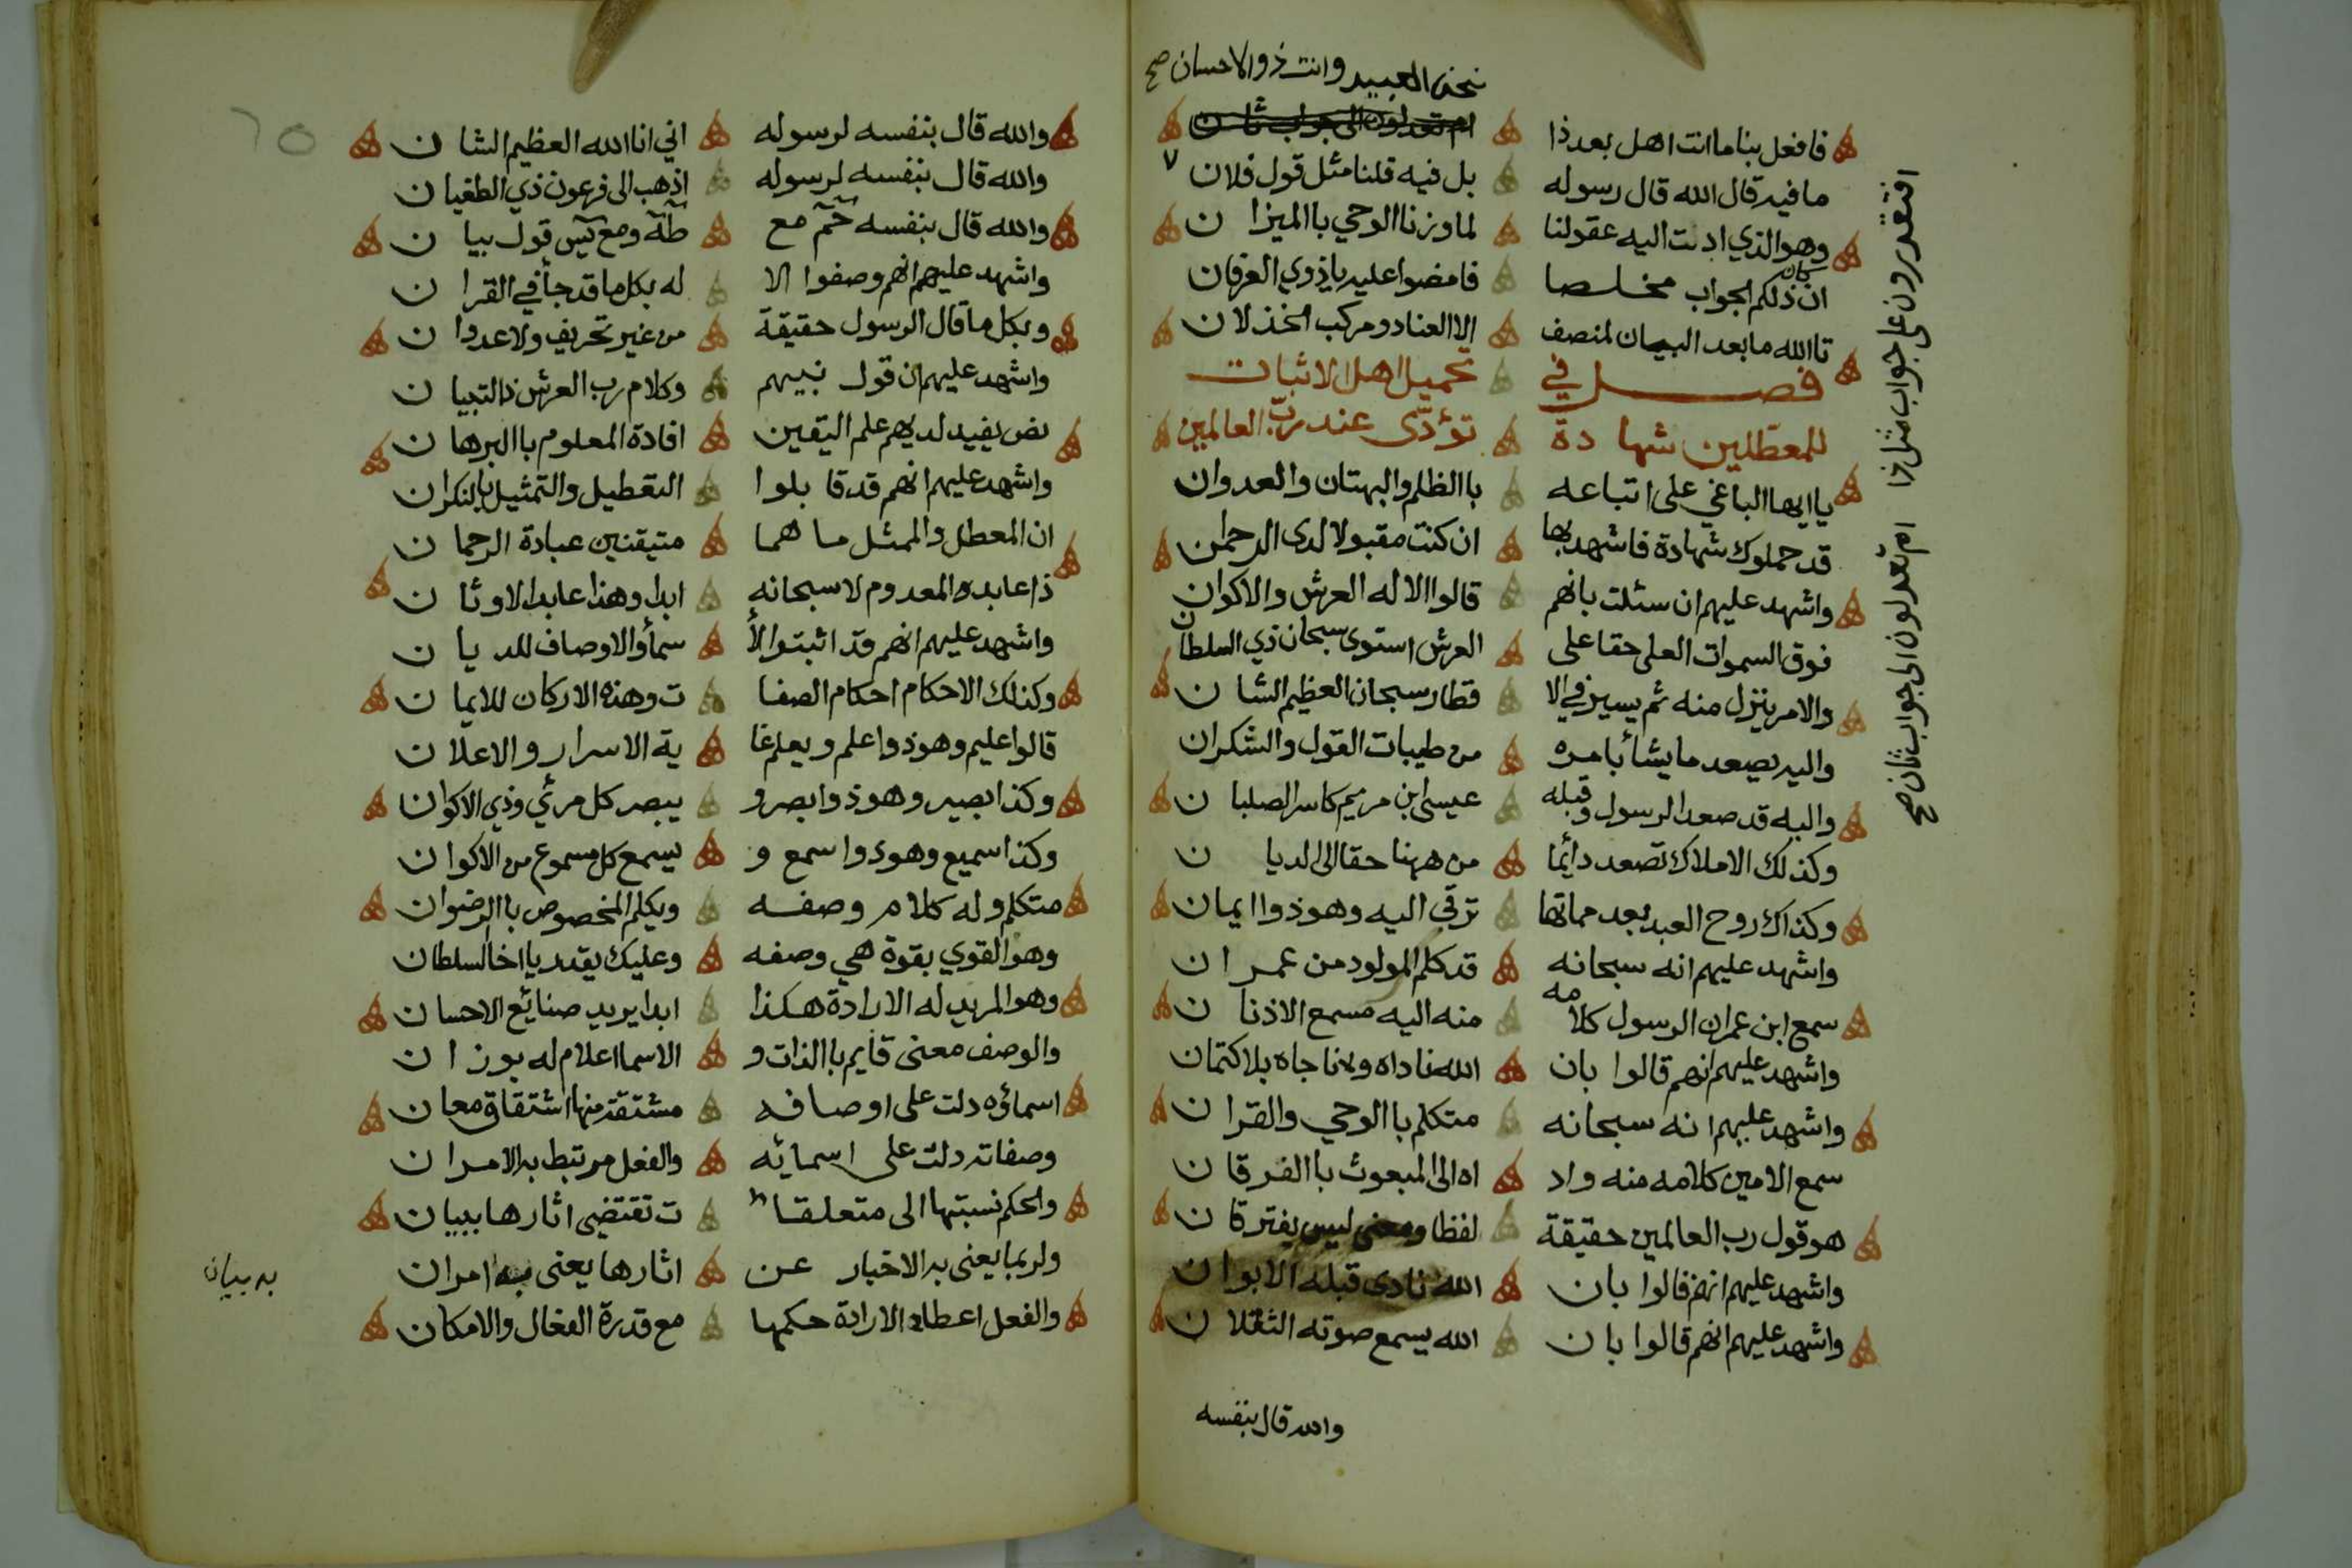 نحن العبيد وانت ذوالاحسان صح
فافعل بنا ما انت اهل بعد ذا ام تعدلون الى جواب ثان
افتقدرون على جواب مثل ذا ام تعدلون الى جواب ثان صح
ما فيه قال الله قال رسوله بل فيه قلنا مثل قول فلان ٧
وهو الذي ادت اليه عقولنا لما وزنا الوحي باالميزان
ان كان ذلكم الجواب مخلصا فامضوا عليه ياذوي العرفان
تاالله ما بعد البيان لمنصف الا العناد ومركب الخذلان
فصل في تحميل اهل الاثبات
للمعطلين شهادة تؤدّى عند ربّ العالمين
يا ايها الباغي على اتباعه باالظلم والبهتان والعدوان
قد حملوك شهادة فاشهد بها ان كنت مقبولا لدى الرحمن
واشهد عليهم ان سئلت بانهم قالوا الاله العرش والاكوان
فوق السموات العلى حقا على العرش استوى سبحان ذي السلطان
والامر ينزل منه ثم يسير في الا قطار سبحان العظيم الشان
واليه يصعد ما يشأ بامره من طيبات القول والشكران
واليه قد صعد الرسول وقبله عيسى ابن مريم كاسر الصلبان
وكذلك الاملاك تصعد دائما من ههنا حقا الى الديان
وكذاك روح العبد بعد مماتها ترقى اليه وهو ذواايمان
واشهد عليهم انه سبحانه قد كلم المولود من عمران
سمع ابن عمران الرسول كلامه منه اليه مسمع الاذنان
واشهد عليهم انهم قالوا بان الله ناداه وناجاه بلاكتمان
واشهد عليهم انه سبحانه متكلم باالوحي والقران
سمع الامين كلامه منه واد اه الى المبعوث باالفرقان
هو قول رب العالمين حقيقة لفظا ومعنى ليس يفترقان
واشهد عليهم انهم قالوا بان الله نادى قبله الابوان
واشهد عليهم انهم قالوا بان الله يسمع صوته الثقلان
والله قال بنفسه
٦٥
والله قال بنفسه لرسوله اني انا الله العظيم الشان
والله قال بنفسه لرسوله اذهب الى فرعون ذي الطغيان
والله قال بنفسه حم مع طه ومع يس قول بيان
واشهد عليهم انهم وصفوا الا له بكل ما قد جأ في القران
وبكل ما قال الرسول حقيقة من غير تحريف ولا عدوان
واشهد عليهم ان قول نبيهم وكلام رب العرش ذا التبيان
نص يفيد لديهم علم اليقين افادة المعلوم باالبرهان
واشهد عليهم انهم قد قابلوا التعطيل والتمثيل بالنكران
ان المعطل والممثل ما هما متيقنين عبادة الرحمان
ذا عابد المعدوم لا سبحانه ابدا وهذا عابد الاوثان
واشهد عليهم انهم قد اثبتوا الأ سمأ والاوصاف للديان
وكذلك الاحكام احكام الصفا ت وهذه الاركان للايمان
قالوا عليم وهو ذو اعلم ويعلم غا ية الاسرار والاعلان
وكذا بصير وهو ذو ابصر و يبصر كل مرئي وذي الاكوان
وكذا سميع وهو ذو اسمع و يسمع كل مسموع من الاكوان
متكلم وله كلام وصفه ويكلم المخصوص باالرضوان
وهو القوي بقوة هي وصفه وعليك يقدر يا اخا السلطان
وهو المريد له الارادة هكذا ابدا يريد صنايع الاحسان
والوصف معنى قايم باالذات و الاسما اعلام له بوزان
اسماؤه دلت على اوصافه مشتقة منها اشتقاق معان
وصفاته دلت على اسمائه والفعل مرتبط به الامران
والحكم نسبتها الى متعلقا ت تقتضي اثارها ببيان
ولربما يعنى به الاخبار عن اثارها يعنى به امران
به بيان
والفعل اعطاء الارادة حكمها مع قدرة الفعال والامكان